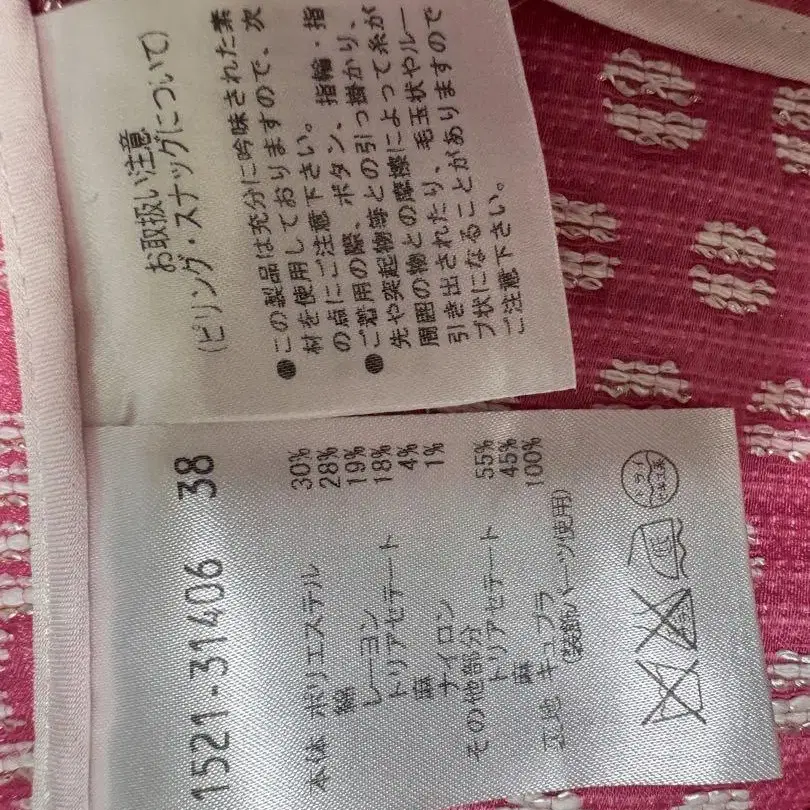 お取扱い注意
(ピリング・スナッグについて)
●この製品は充分に吟味された素
材を使用しておりますので、次
の点にご注意下さい。
●ご着用の際、ボタン、指輪・指
先や突起物等との引っ掛かり、
周囲の物との摩擦によって糸が
引き出されたり、毛玉状やルー
プ状になることがありますので
ご注意下さい。
1521-31406 38
本体 ポリエステル 30%
綿 28%
レーヨン 19%
トリアセテート 18%
麻 4%
ナイロン 1%
その他部分
トリアセテート 55%
麻 45%
キュプラ 100%
(装飾パーツ使用)
ドライ